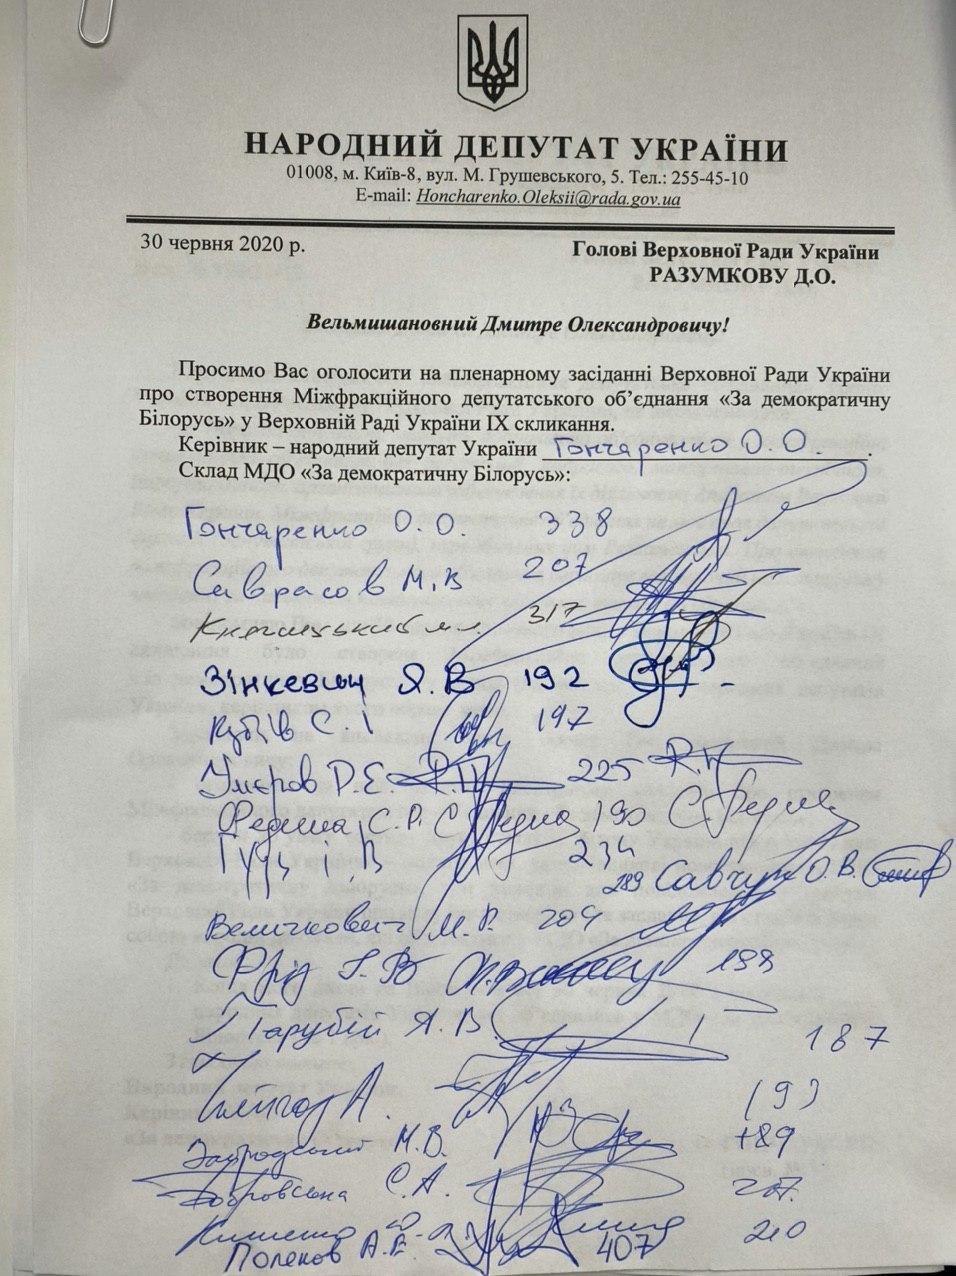 НАРОДНИЙ ДЕПУТАТ УКРАЇНИ
01008, м. Київ-8, вул. М. Грушевського, 5. Тел.: 255-45-10
E-mail: Honcharenko.Oleksii@rada.gov.ua
30 червня 2020 р.
Голові Верховної Ради України
РАЗУМКОВУ Д.О.
Вельмишановний Дмитре Олександровичу!
Просимо Вас оголосити на пленарному засіданні Верховної Ради України
про створення Міжфракційного депутатського об’єднання «За демократичну
Білорусь» у Верховній Раді України ІХ скликання.
Керівник – народний депутат України Гончаренко О.О.
Склад МДО «За демократичну Білорусь»:
Гончаренко О.О. 338
Саврасов М.В 207
317
Зінкевич Я.В 192
Кубів С.І 197
Умєров Р.Е. 225
Федина С.Р. 190
Гузь І.В 234
289 Савчук О.В.
Величкович М.Р. 204
Фріз І.В 199
Парубій А.В. 187
Забродський М.В. 189
С.А.
210
Поляков А.Е. 407